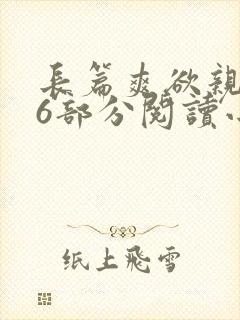 長篇爽欲親
6部分閱讀小
纸上飛雪